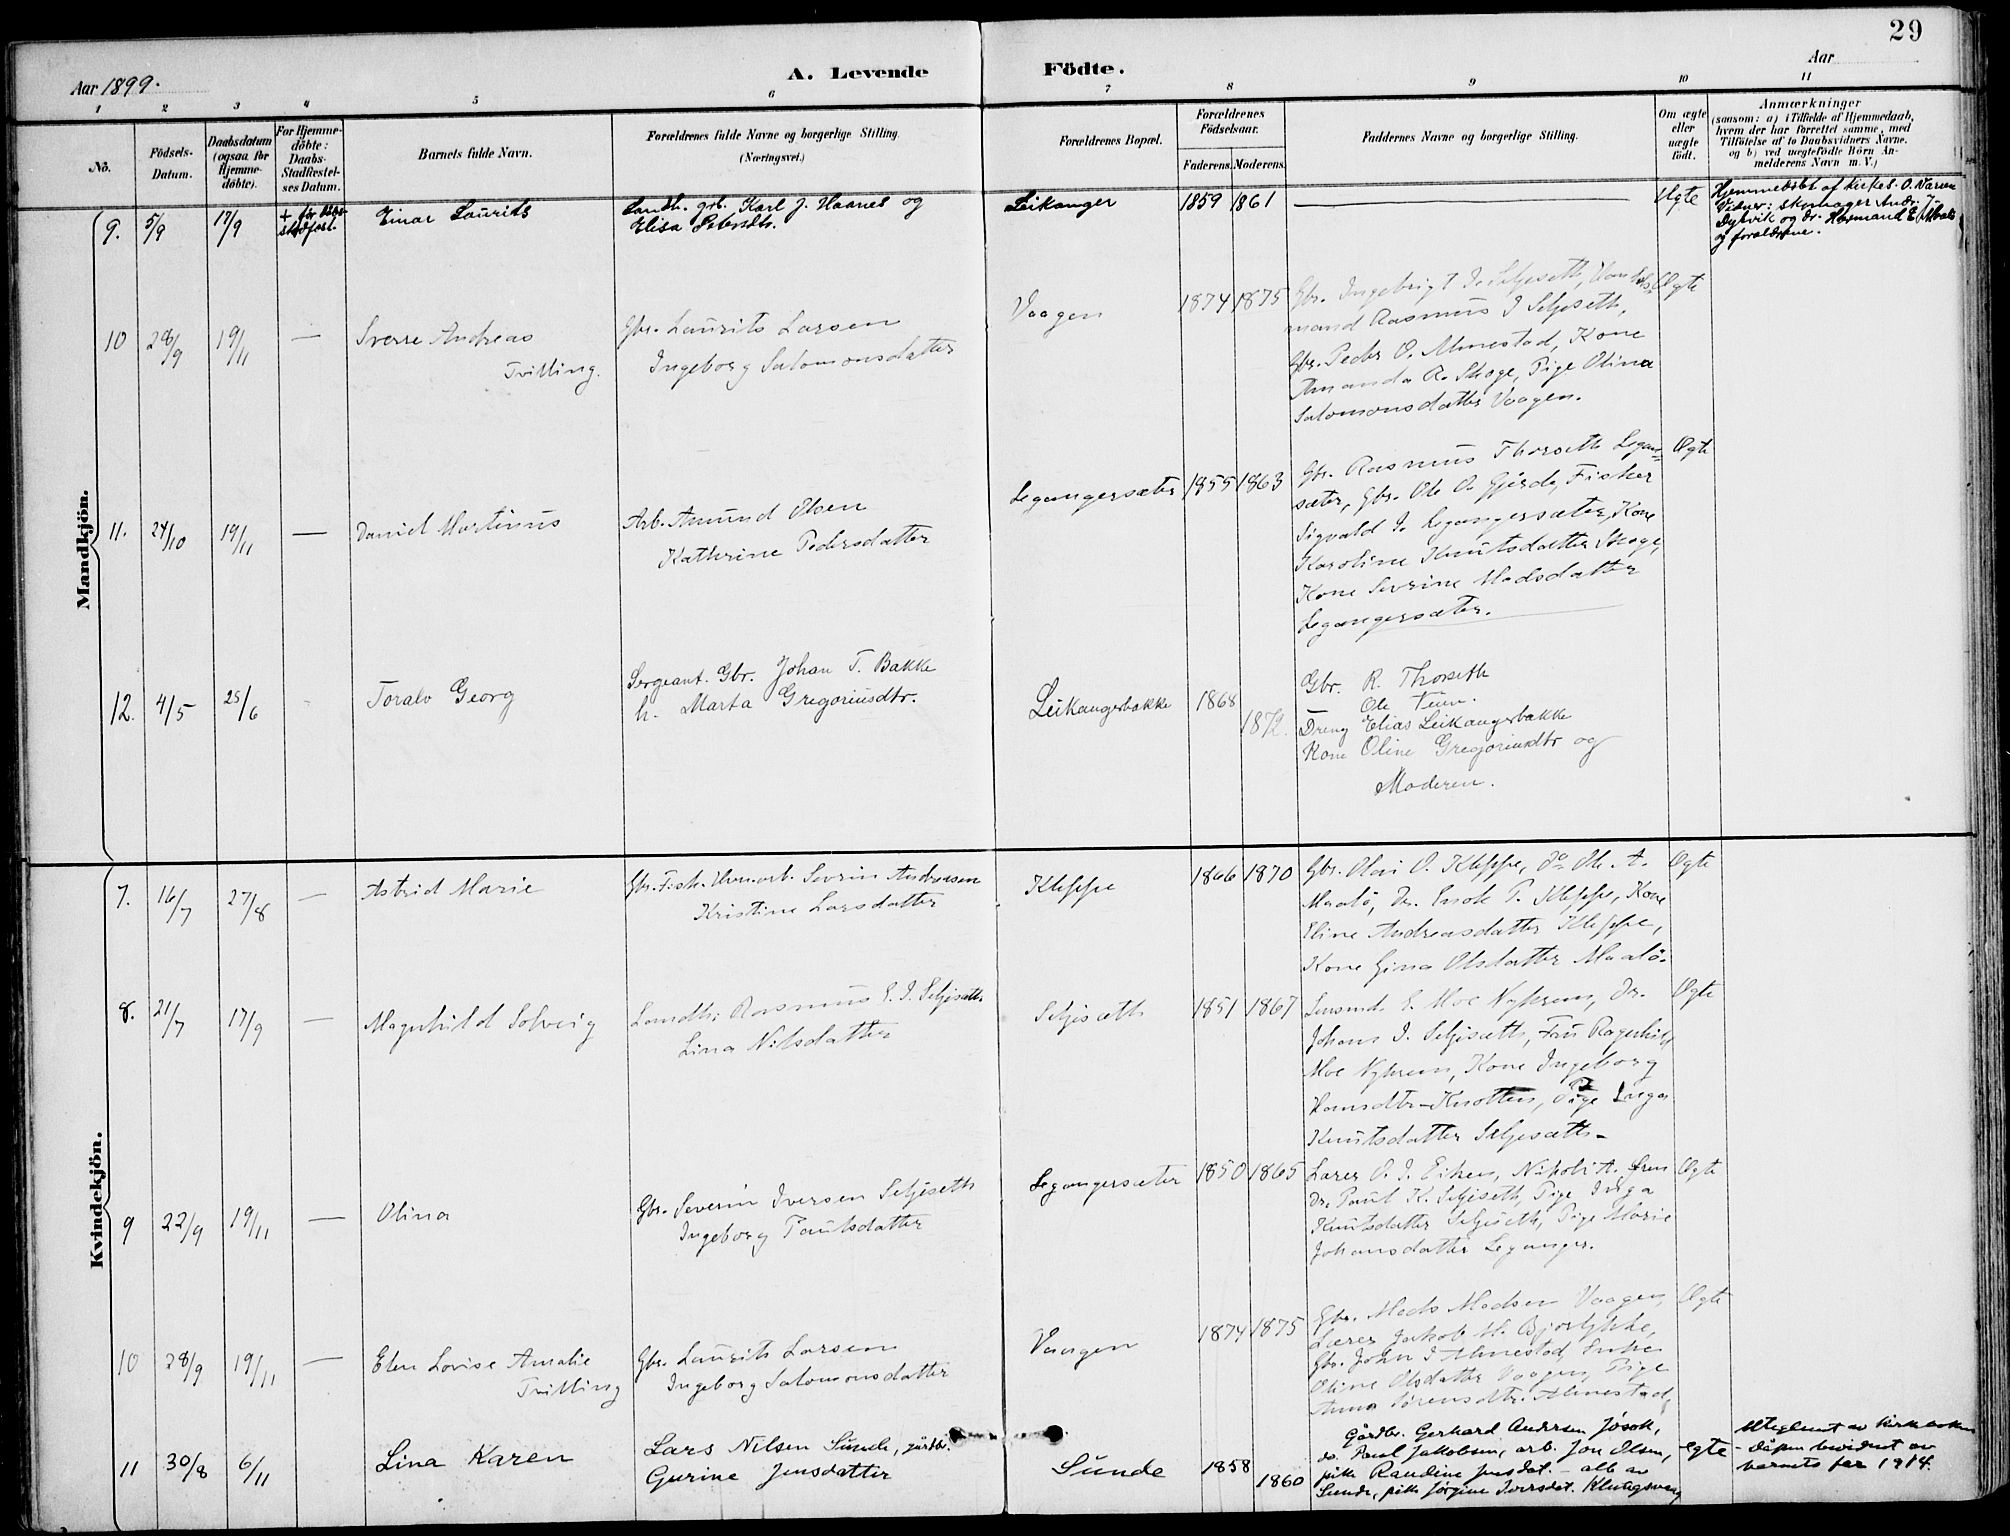 29
Aar 1899.
A. Levende
Födte.
Aar
1 2 3 4 5 6 7 8 9 10 11
No.
Födsels-
Datum.
Daabsdatum
(ogsaa for
Hjemme-
döbte).
For Hjemme-
döbte:
Daabs-
Stadfæstel-
ses Datum.
Barnets fulde Navn.
Forældrenes fulde Navne og borgerlige Stilling.
(Næringsvei.)
Forældrenes Bopæl.
Forældrenes
Födselsaar.
Faderens. Moderens.
Faddernes Navne og borgerlige Stilling.
Om ægte
eller
uægte
födt.
Anmærkninger
(saasom: a) i Tilfælde af Hjemmedaab,
hvem der har forrettet samme, med
Tilföielse af to Daabsvidners Navne,
og b) ved uægtefödte Börn An-
melderens Navn m. V.)
Mandkjön.
9. 5/9 17/9 + før
Einar Laurits
Landh. grb. Karl J. Haanes og
Elisa
Leikanger 1859 1861
Ægte
Hjemmedøbt af kirkes. O.
Vidner: skomager Andr. J.
Dysvik og dr. Hermand E.
og forældrene.
10 28/9 19/11 —
Sverre Andreas
Tvilling.
Gbr. Laurits Larsen
Ingeborg Salomonsdatter
Vaagen 1874 1875
Gbr. Ingebrigt I. Seljeseth,
mand Rasmus I Seljeseth,
Gbr. Peder O. Almestad, Kone
Amanda R. Skoge, Pige Olina
Salomonsdatter Vaagen.
Ægte
11. 24/10 19/11 —
Daniel Martinus
Arb. Amund Olsen
Kathrine Pedersdatter
Legangersæter 1855 1863
Gbr. Rasmus Thorseth Legan-
sæter, Gbr. Ole O. Gjerde, Fisker
Sigvald I. Legangersæter, Kone
Karoline Knutsdatter Skoge,
Kone Sevrine Madsdatter
Legangersæter.
Ægte
12. 4/5 25/6
Toralv Georg
Sergeant. Gbr. Johan T. Bakke
h. Marta Gregoriusdtr.
Leikangerbakke 1868
1872.
Gbr. R. Thorseth
Ole
Dreng Elias Leikangerbakke
Kone Oline Gregoriusdtr og
Moderen.
Kvindekjön.
7. 16/7 27/8 —
Astrid Marie
Gbr. Fisk. Sevrin Andersen
Kristine Larsdatter
Kleppe 1866 1870
Gbr. Olai O. Kleppe, do Ole A.
Maalö, Dr. Enok P. Kleppe, Kone
Eline Andreasdatter Kleppe,
Kone Gina Olsdatter Maalö.
Ægte
8. 21/7 17/9 —
Magnhild Solveig
Landh. Rasmus E. I. Seljesæth
Lina Nilsdatter
Seljesæth 1851 1867
E. Moe Nykrem, Dr.
Johans I. Seljesæth, Fru Ragnhild
Moe Nykrem, Kone Ingeborg
Hansdtr Knotten, Pige Inga
Knutsdatter Seljesæth
Ægte
9 22/9 19/11 —
Olina
Gbr. Severin Iversen Seljeseth
Ingeborg Paulsdatter
Legangersæter 1850 1865
Lærer O. I. Eiken, Nikoli A.
Dr. Paul K. Seljeseth, Pige Inga
Knutsdatter Seljeseth, Pige Marie
Johansdatter Leganger.
Ægte
10 28/9 19/11 —
Elen Lovise Amalie
Tvilling
Gbr. Laurits Larsen
Ingeborg Salomonsdatter
Vaagen 1874 1875
Gbr. Mads Madsen Vaagen,
Lærer Jakob M. Bjørlykke,
Gbr. John I Almestad, Enke
Oline Olsdatter Vaagen, Pige
Anna Sørensdtr. Almestad,
Ægte
11 30/8 6/11
Lina Karen
Lars Nilsen Sunde, gårdbr.
Gurine Jensdatter
Sunde 1858
1860
Gårdbr. Gerhard Andrsen Jøsok,
do. Paul Jakobsen, arb. Jon Olsen,
pike Raudine Jensdat. – alle av
Sunde, pike Jørgine Iversdat.
egte
Uteglemt av
– Dåpen bevidnet av
barnets far 1914.